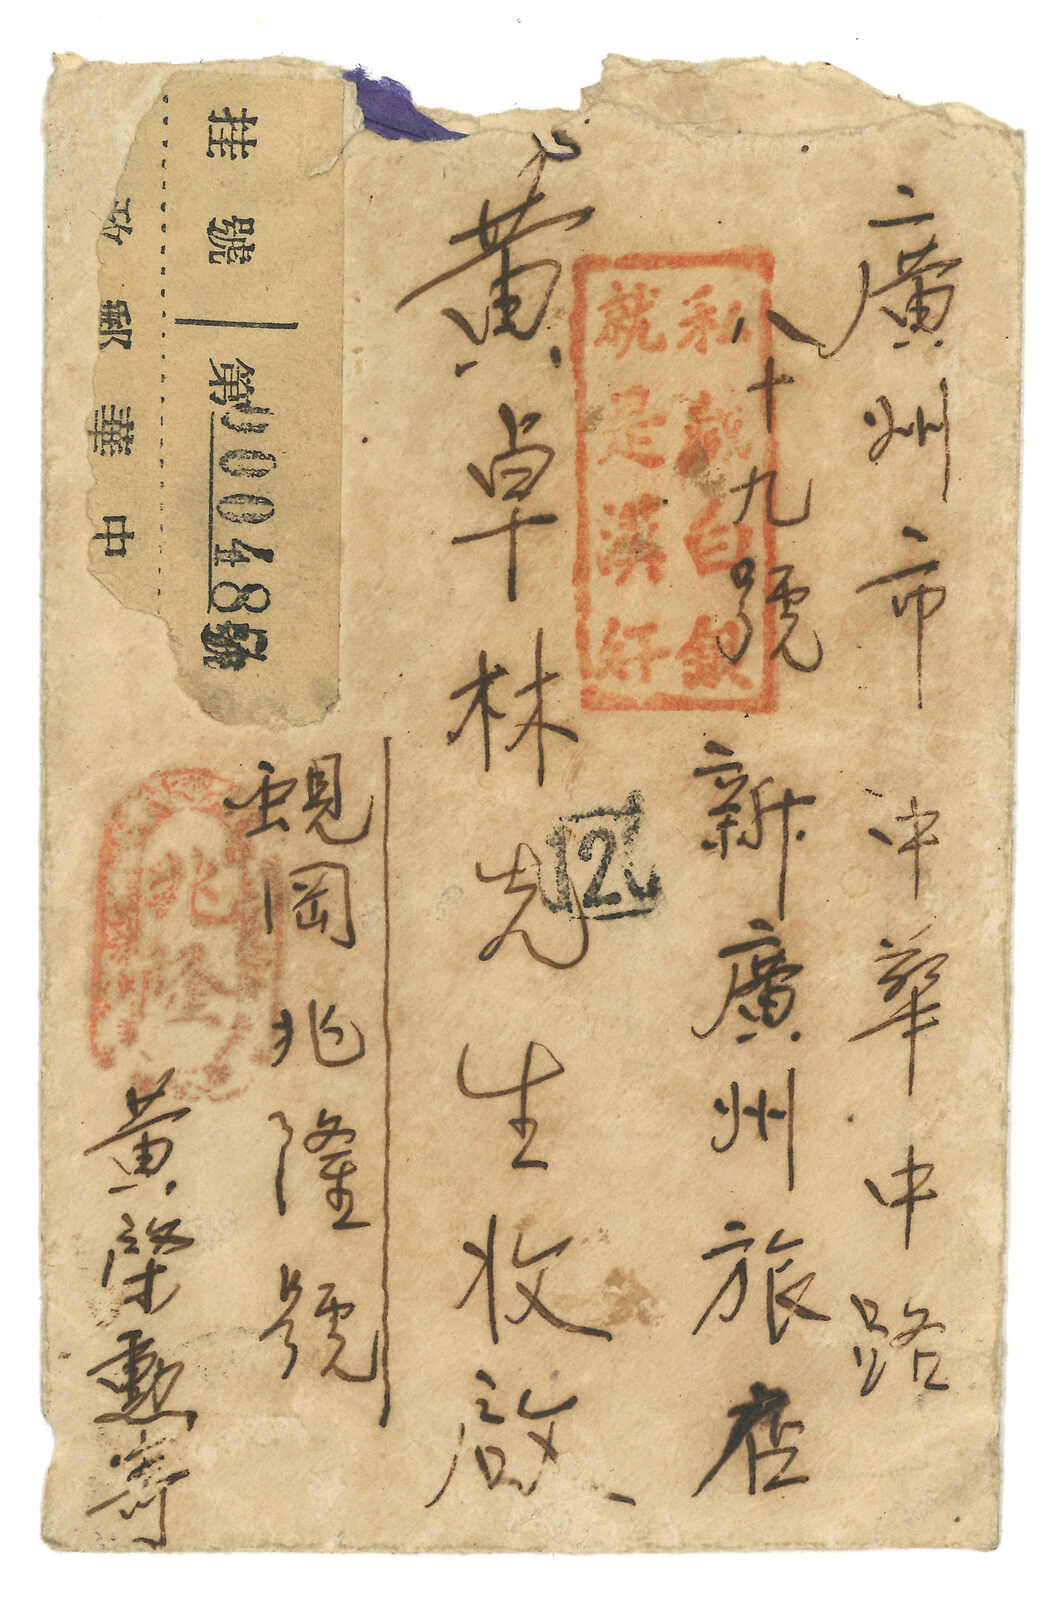 廣州市中華中路
八十九號
新廣州旅店
黃卓林先生收啟
蜆岡兆隆號
黃榮勳寄
私藏白銀
就是漢奸
兆隆
2
挂號
第00048號
中華郵政